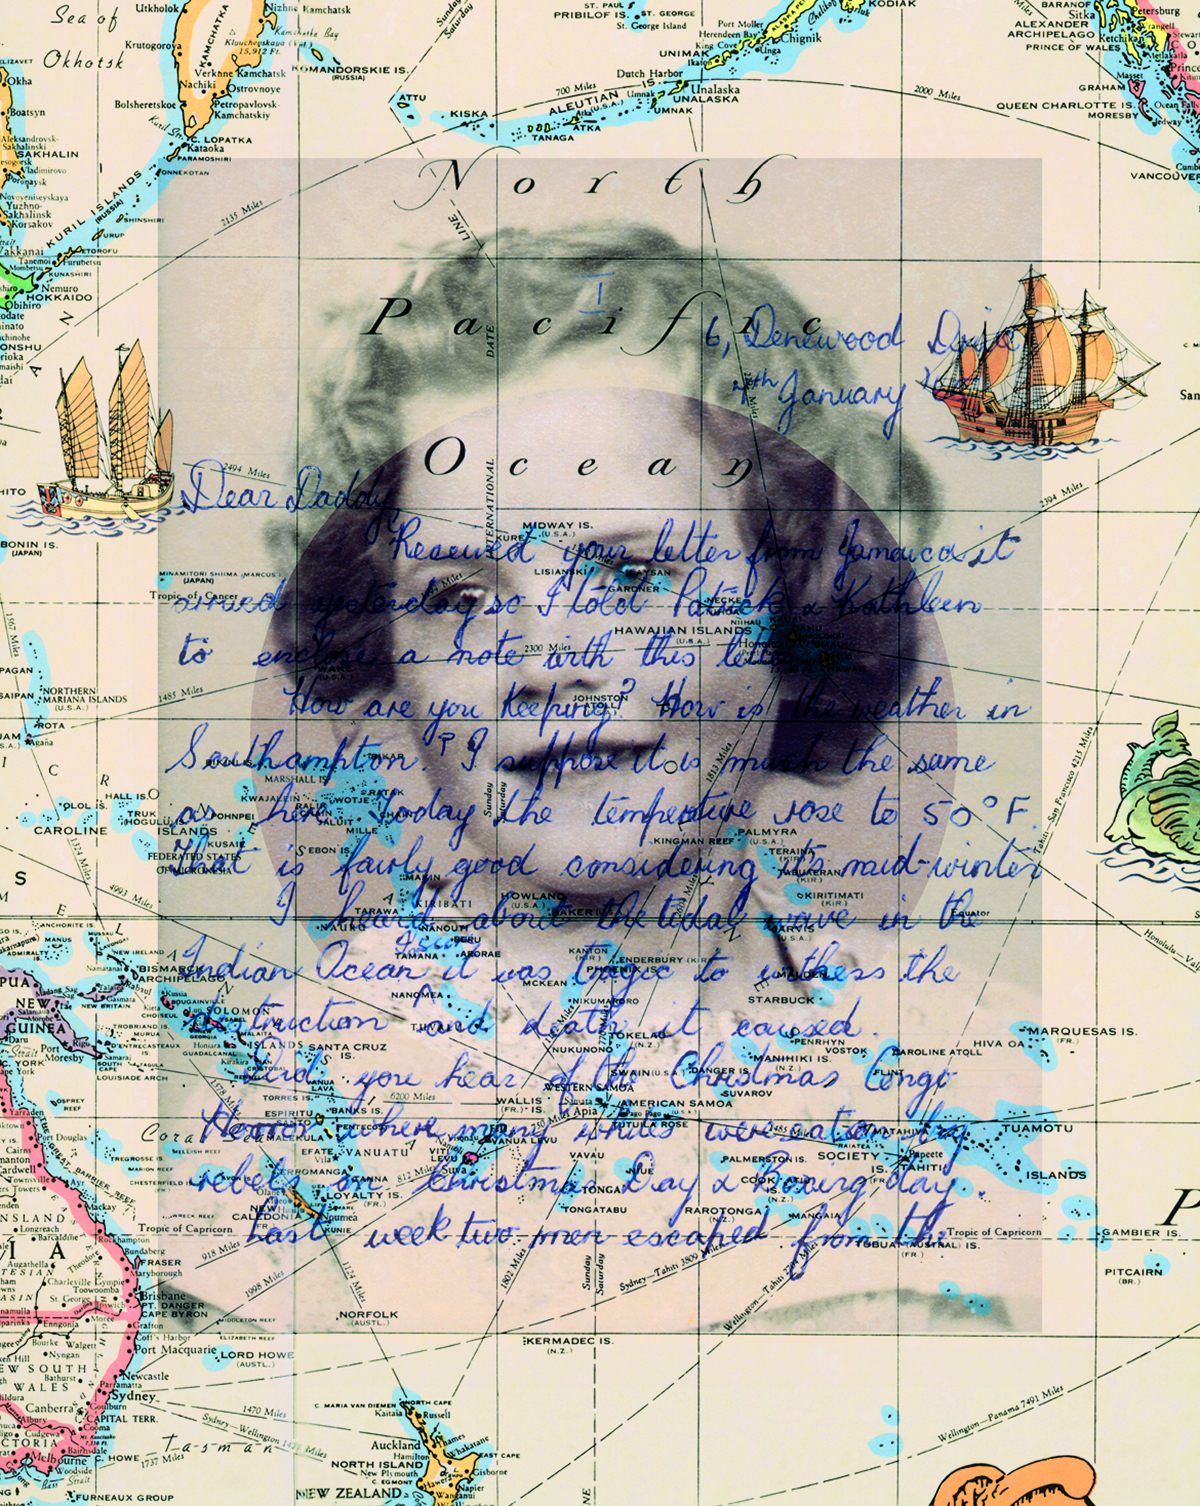 Sea of
Okhotsk
Utkholok
Nizhne Kamchatsk
Krutogorova
KAMCHATKA
Kamchatka Bay
Klyuchevskaya (vol.)
15,912 Ft.
Verkhne Kamchatsk
Nachiki
Ostrovnoye
Bolsheretskoe
Petropavlovsk-
Kamchatskiy
C. LOPATKA
Kataoka
PARAMOSHIRI
ONNEKOTAN
KOMANDORSKIE IS.
(RUSSIA)
ATTU
KISKA
TANAGA
ATKA
ALEUTIAN IS.
(U.S.A.)
700 Miles
Dutch Harbor
Umnak
UMNAK
Unalaska
UNALASKA
ST. PAUL
PRIBILOF IS.
ST. GEORGE
St. George Island
Port Moller
Herendeen Bay
King Cove
UNIMAK
Ikatan
Unga
Chignik
KODIAK
Sunday
Saturday
2000 Miles
BARANOF
Sitka
ALEXANDER
ARCHIPELAGO
PRINCE OF WALES
Petersburg
Ketchikan
Masset
GRAHAM
QUEEN CHARLOTTE IS.
MORESBY
Jedway
VANCOUVER
Okha
Boatsyn
SAKHALIN
Yuzhno-
Sakhalinsk
Korsakov
KURIL ISLANDS
(RUSSIA)
SHINSHIRI
URUP
ETOROFU
KUNASHIRI
Nemuro
HOKKAIDO
Obihiro
2135 Miles
North
Pacific
Ocean
INTERNATIONAL
DATE
LINE
I
6, Denewood Drive
4th January
2494 Miles
2394 Miles
Dear Daddy,
Received your letter from Jamaica it
arrived yesterday so I told Patrick & Kathleen
to enclose a note with this letter
How are you Keeping? How is the weather in
Southampton? I suppose it is much the same
as here Today the temperture rose to 50°F
That is fairly good considering it's mid-winter
I heard about the tidal wave in the
Indian Ocean it was tragic to witness the
destruction and death it caused.
Did you hear of the Christmas Congo
Horror where many whites were eaten by
rebels on Christmas Day & Boxing day.
Last week two men escaped from the
BONIN IS.
(JAPAN)
MINAMITORI SHIMA (MARCUS I.)
(JAPAN)
Tropic of Cancer
MIDWAY IS.
(U.S.A.)
KURE
LISIANSKI
LAYSAN
GARDNER
NECKER
NIIHAU
HAWAIIAN ISLANDS
(U.S.A.)
2300 Miles
1485 Miles
WAKE
(U.S.A.)
JOHNSTON
ATOLL
PAGAN
SAIPAN
NORTHERN
MARIANA ISLANDS
(U.S.A.)
ROTA
Agaña
HALL IS.
OLOL IS.
TRUK
CAROLINE
ISLANDS
POHNPEI
KUSAIE
FEDERATED STATES
OF MICRONESIA
1324 Miles
4993 Miles
MARSHALL IS.
KWAJALEIN
RATAK
WOTJE
JALUIT
MILLE
EBON IS.
MAKIN
TARAWA
KIRIBATI
NAURU
NANOUTI
BERU
TAMANA
ARORAE
HOWLAND
(U.S.A.)
BAKER
KINGMAN REEF
PALMYRA
(U.S.A.)
TERAINA
(KIR.)
TABUAERAN
KIRITIMATI
(KIR.)
JARVIS
(U.S.A.)
Equator
1813 Miles
Sunday
Saturday
Tahiti—San Francisco 4215 Miles
KANTON
(KIR.)
ENDERBURY (KIR.)
PHOENIX IS.
MCKEAN
NIKUMARORO
MALDEN
STARBUCK
NANOMEA
TUVALU
TOKELAU
(N.Z.)
NUKUNONO
PENRHYN
VOSTOK
CAROLINE ATOLL
FLINT
MANIHIKI IS.
(N.Z.)
DANGER IS.
SWAIN (U.S.A.)
SUVAROV
HIVA OA
MARQUESAS IS.
(FR.)
BISMARCK
ARCHIPELAGO
NEW IRELAND
NEW BRITAIN
ADMIRALTY IS.
MANUS
PAPUA
NEW
GUINEA
Port
Moresby
BOUGAINVILLE
SOLOMON
ISLANDS
MALAITA
GUADALCANAL
TROBRIAND IS.
MURUA
D'ENTRECASTEAUX
LOUISIADE ARCH
SANTA CRUZ
IS.
VANUA
LAVA
TORRES IS.
BANKS IS.
ESPIRITU
SANTO
MALEKULA
PENTECOST
EFATE
Vila
VANUATU
ERROMANGA
TANNA
LOYALTY IS.
(FR.)
NEW
CALEDONIA
Noumea
KUNIE
6200 Miles
WALLIS
(FR.) IS.
WESTERN SAMOA
Apia
AMERICAN SAMOA
TUTUILA ROSE
VANUA LEVU
VITI
LEVU
Suva
VAVAU
TONGA
TONGATABU
NIUE
PALMERSTON IS.
COOK IS.
(N.Z.)
RAROTONGA
(N.Z.)
MANGAIA
SOCIETY
IS.
Papeete
TAHITI
TUAMOTU
ISLANDS
Tropic of Capricorn
GAMBIER IS.
(FR.)
PITCAIRN
(BR.)
TUBUAI (AUSTRAL) IS.
(FR.)
Coral Sea
OSPREY
REEF
Port Douglas
GREAT BARRIER REEF
Mackay
Tropic of Capricorn
Rockhampton
Bundaberg
Maryborough
FRASER
Brisbane
PT. DANGER
CAPE BYRON
Grafton
Coff's Harbor
Port Macquarie
ELIZABETH REEF
MIDDLETON REEF
LORD HOWE
(AUSTL.)
NORFOLK
(AUSTL.)
KERMADEC IS.
(N.Z.)
918 Miles
1998 Miles
1124 Miles
1802 Miles
Sunday
Saturday
Sydney—Tahiti 3809 Miles
Newcastle
Parramatta
Sydney
NEW SOUTH
WALES
Canberra
CAPITAL TERR.
VICTORIA
Melbourne
C. HOWE
Tasman
1470 Miles
1737 Miles
FURNEAUX GROUP
C. MARIA VAN DIEMEN
NORTH CAPE
Kaitaia
Russell
Auckland
Hamilton
Thames
Whakatane
EAST CAPE
NORTH ISLAND
New Plymouth
C. EGMONT
Gisborne
Napier
Wanganui
NEW ZEALAND
Wellington—Panama 7491 Miles